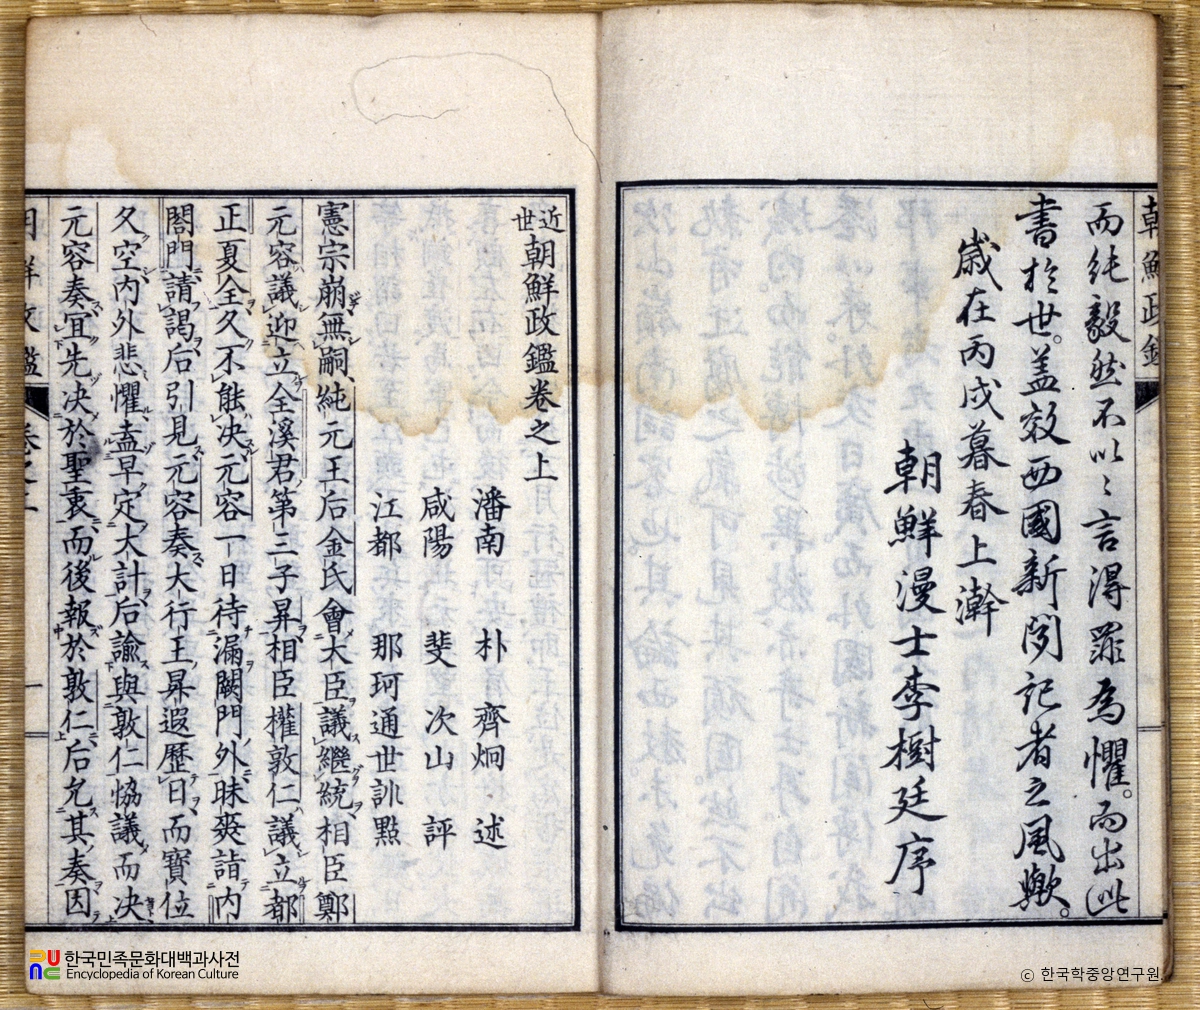 朝鮮政鑑
而純毅然不以〻言得罪為懼。而出此
書於世。蓋效西國新聞記者之風歟。
歲在丙戌暮春上澣
朝鮮漫士李樹廷序
近世朝鮮政鑑卷之上
潘南 朴齊炯 述
咸陽 斐次山 評
江都 那珂通世訓點
憲宗崩無嗣純元王后金氏會大臣議繼統相臣鄭
元容議迎立全溪君第三子昇相臣權敦仁議立都
正夏全久不能决元容一日待漏闕門外昧爽詣内
閤門請謁后引見元容奏大行王昇遐歷日而寶位
久空内外悲懼盍早定大計后諭與敦仁恊議而决
元容奏宜先决於聖衷而後報於敦仁后允其奏因
卷之上
一
한국민족문화대백과사전
Encyclopedia of Korean Culture
© 한국학중앙연구원